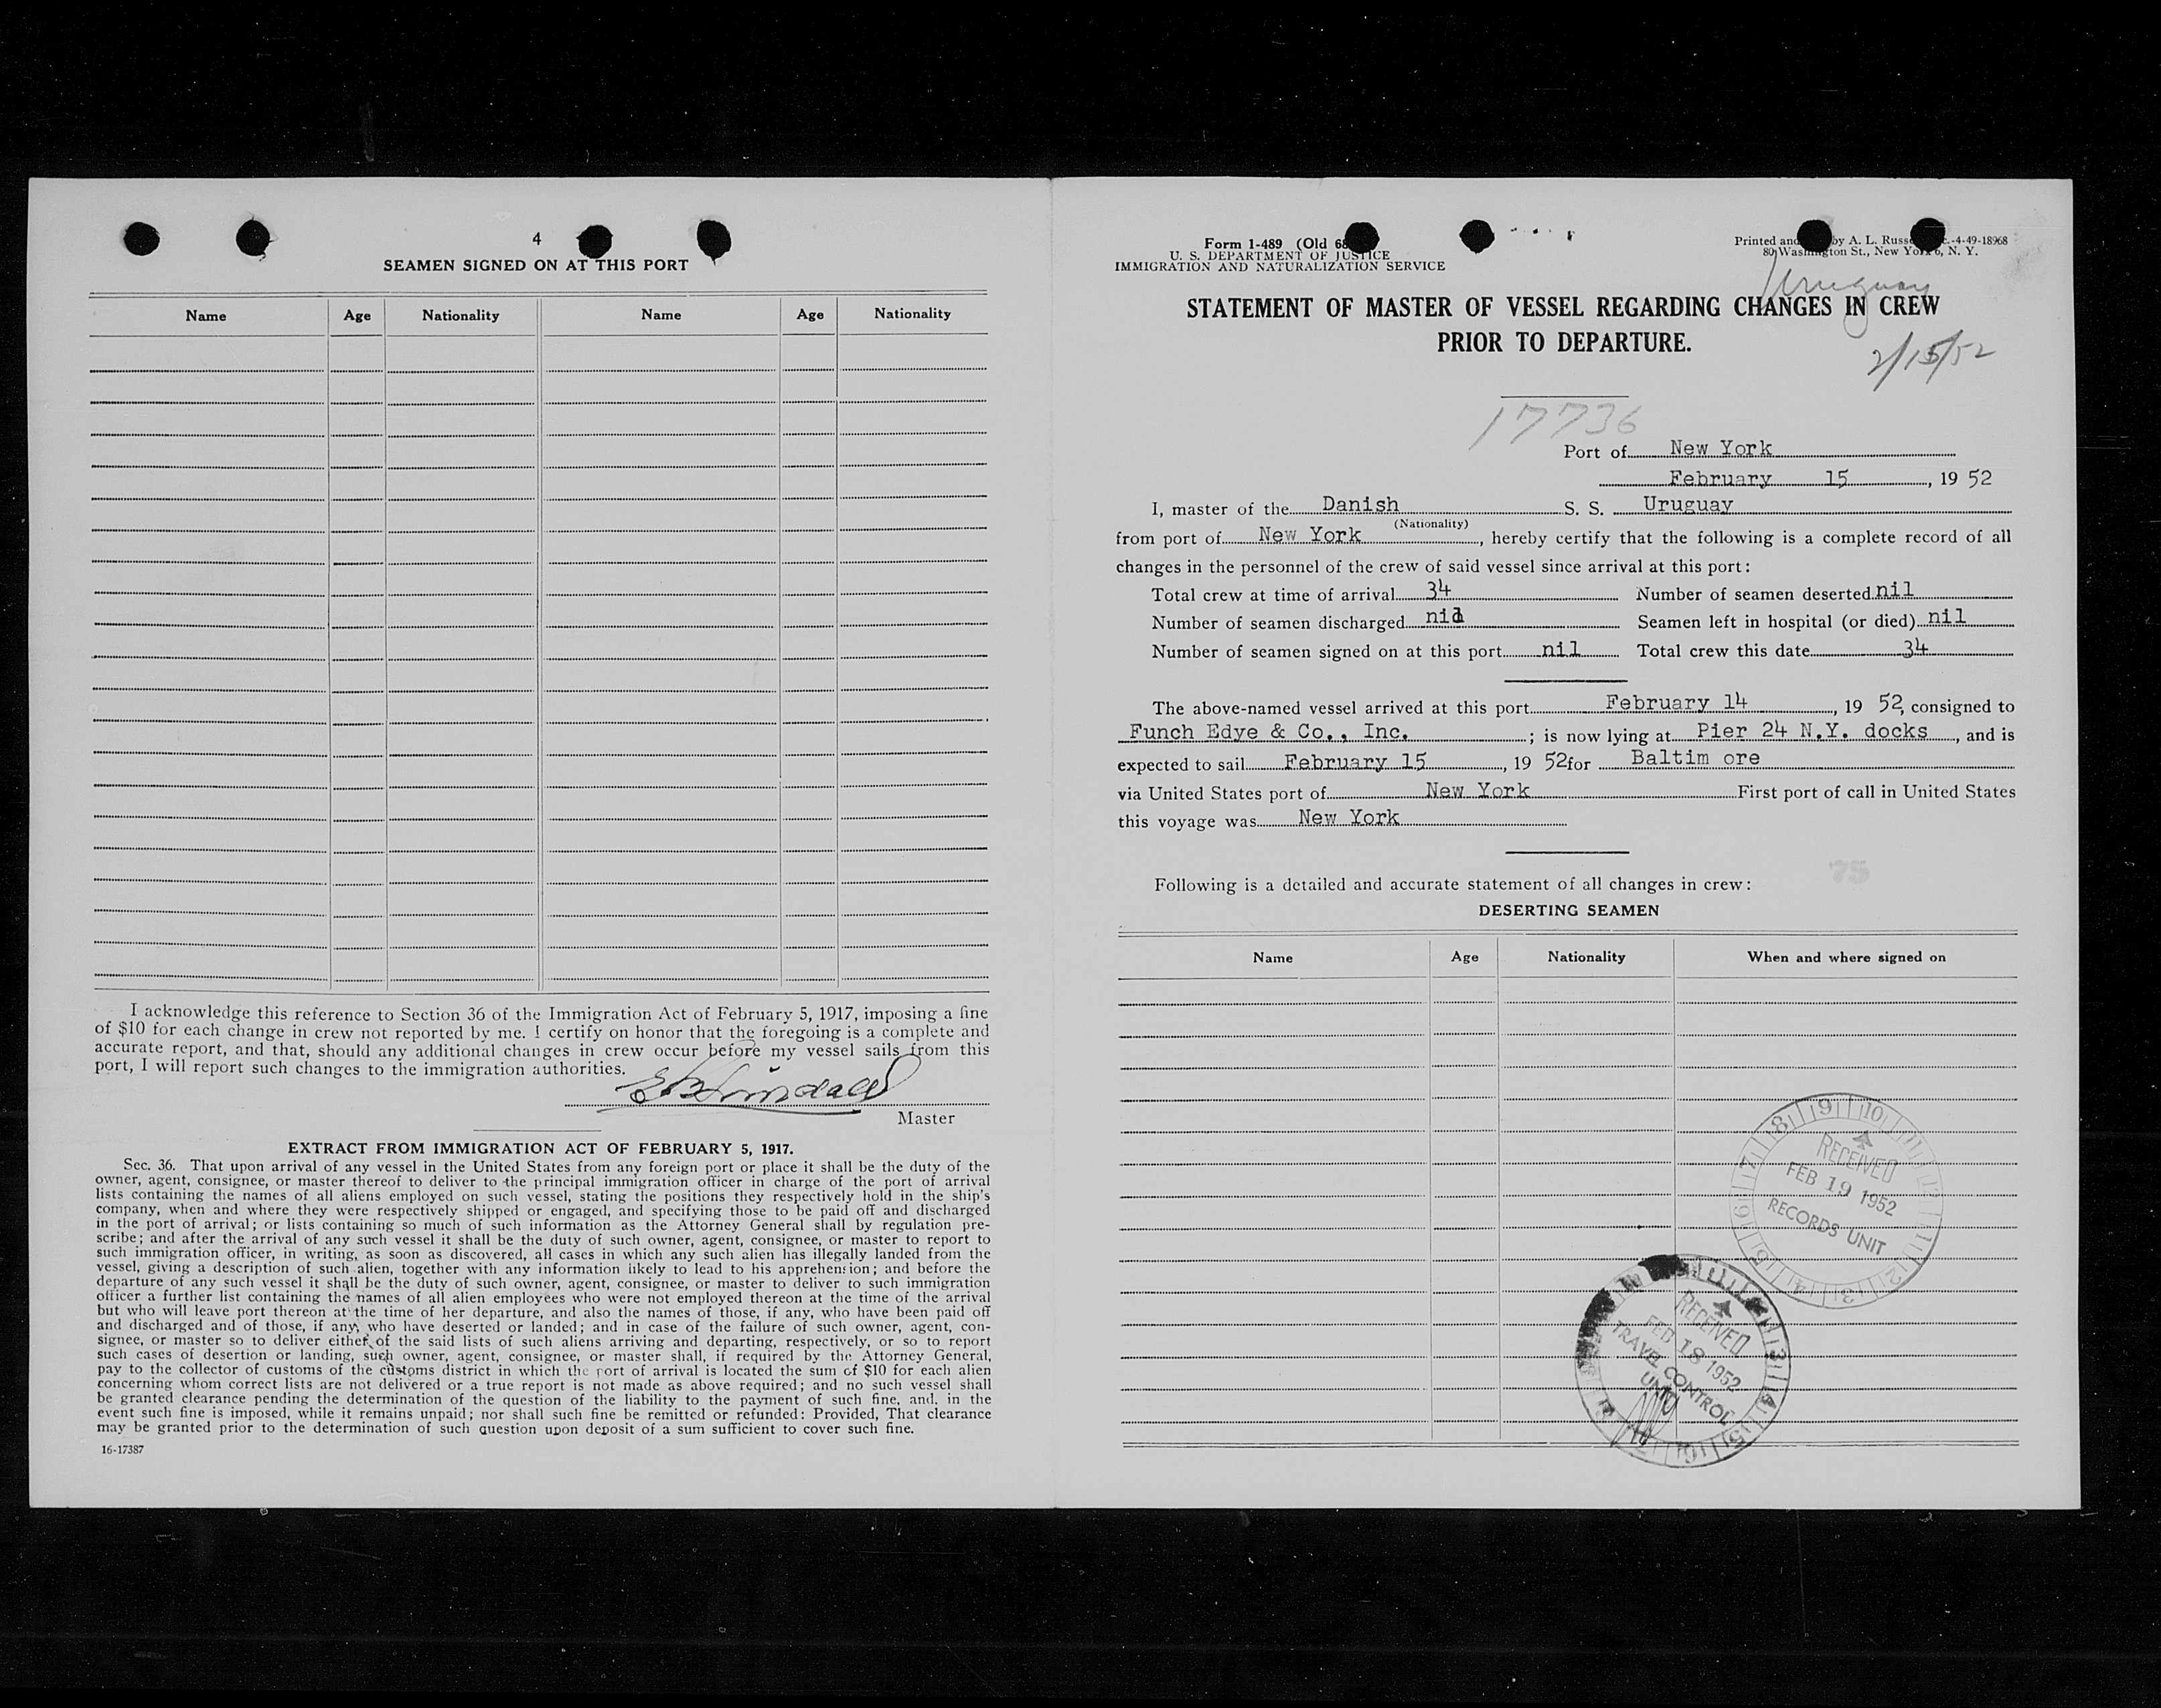 4
SEAMEN SIGNED ON AT THIS PORT
Name Age Nationality Name Age Nationality
I acknowledge this reference to Section 36 of the Immigration Act of February 5, 1917, imposing a fine
of $10 for each change in crew not reported by me. I certify on honor that the foregoing is a complete and
accurate report, and that, should any additional changes in crew occur before my vessel sails from this
port, I will report such changes to the immigration authorities.
Master
EXTRACT FROM IMMIGRATION ACT OF FEBRUARY 5, 1917.
Sec. 36. That upon arrival of any vessel in the United States from any foreign port or place it shall be the duty of the
owner, agent, consignee, or master thereof to deliver to the principal immigration officer in charge of the port of arrival
lists containing the names of all aliens employed on such vessel, stating the positions they respectively hold in the ship's
company, when and where they were respectively shipped or engaged, and specifying those to be paid off and discharged
in the port of arrival; or lists containing so much of such information as the Attorney General shall by regulation pre-
scribe; and after the arrival of any such vessel it shall be the duty of such owner, agent, consignee, or master to report to
such immigration officer, in writing, as soon as discovered, all cases in which any such alien has illegally landed from the
vessel, giving a description of such alien, together with any information likely to lead to his apprehension; and before the
departure of any such vessel it shall be the duty of such owner, agent, consignee, or master to deliver to such immigration
officer a further list containing the names of all alien employees who were not employed thereon at the time of the arrival
but who will leave port thereon at the time of her departure, and also the names of those, if any, who have been paid off
and discharged and of those, if any, who have deserted or landed; and in case of the failure of such owner, agent, con-
signee, or master so to deliver either of the said lists of such aliens arriving and departing, respectively, or so to report
such cases of desertion or landing, such owner, agent, consignee, or master shall, if required by the Attorney General,
pay to the collector of customs of the customs district in which the port of arrival is located the sum of $10 for each alien
concerning whom correct lists are not delivered or a true report is not made as above required; and no such vessel shall
be granted clearance pending the determination of the question of the liability to the payment of such fine, and, in the
event such fine is imposed, while it remains unpaid; nor shall such fine be remitted or refunded: Provided, That clearance
may be granted prior to the determination of such question upon deposit of a sum sufficient to cover such fine.
16-17387
Form 1-489 (Old 68
U. S. DEPARTMENT OF JUSTICE
IMMIGRATION AND NATURALIZATION SERVICE
Printed and by A. L. Russ c.-4-49-18968
80 Washington St., New York 6, N. Y.
Uruguay
STATEMENT OF MASTER OF VESSEL REGARDING CHANGES IN CREW
PRIOR TO DEPARTURE.
2/15/52
17736
Port of New York
February 15, 19 52
I, master of the Danish S. S. Uruguay
(Nationality)
from port of New York, hereby certify that the following is a complete record of all
changes in the personnel of the crew of said vessel since arrival at this port:
Total crew at time of arrival 34 Number of seamen deserted nil
Number of seamen discharged nil Seamen left in hospital (or died) nil
Number of seamen signed on at this port nil Total crew this date 34
The above-named vessel arrived at this port February 14, 19 52, consigned to
Funch Edye & Co., Inc.; is now lying at Pier 24 N.Y. docks, and is
expected to sail February 15, 19 52 for Baltim ore
via United States port of New York First port of call in United States
this voyage was New York
75
Following is a detailed and accurate statement of all changes in crew:
DESERTING SEAMEN
Name Age Nationality When and where signed on
RECEIVED
FEB 19 1952
RECORDS UNIT
RECEIVED
FEB 18 1952
TRAVEL CONTROL
UNIT